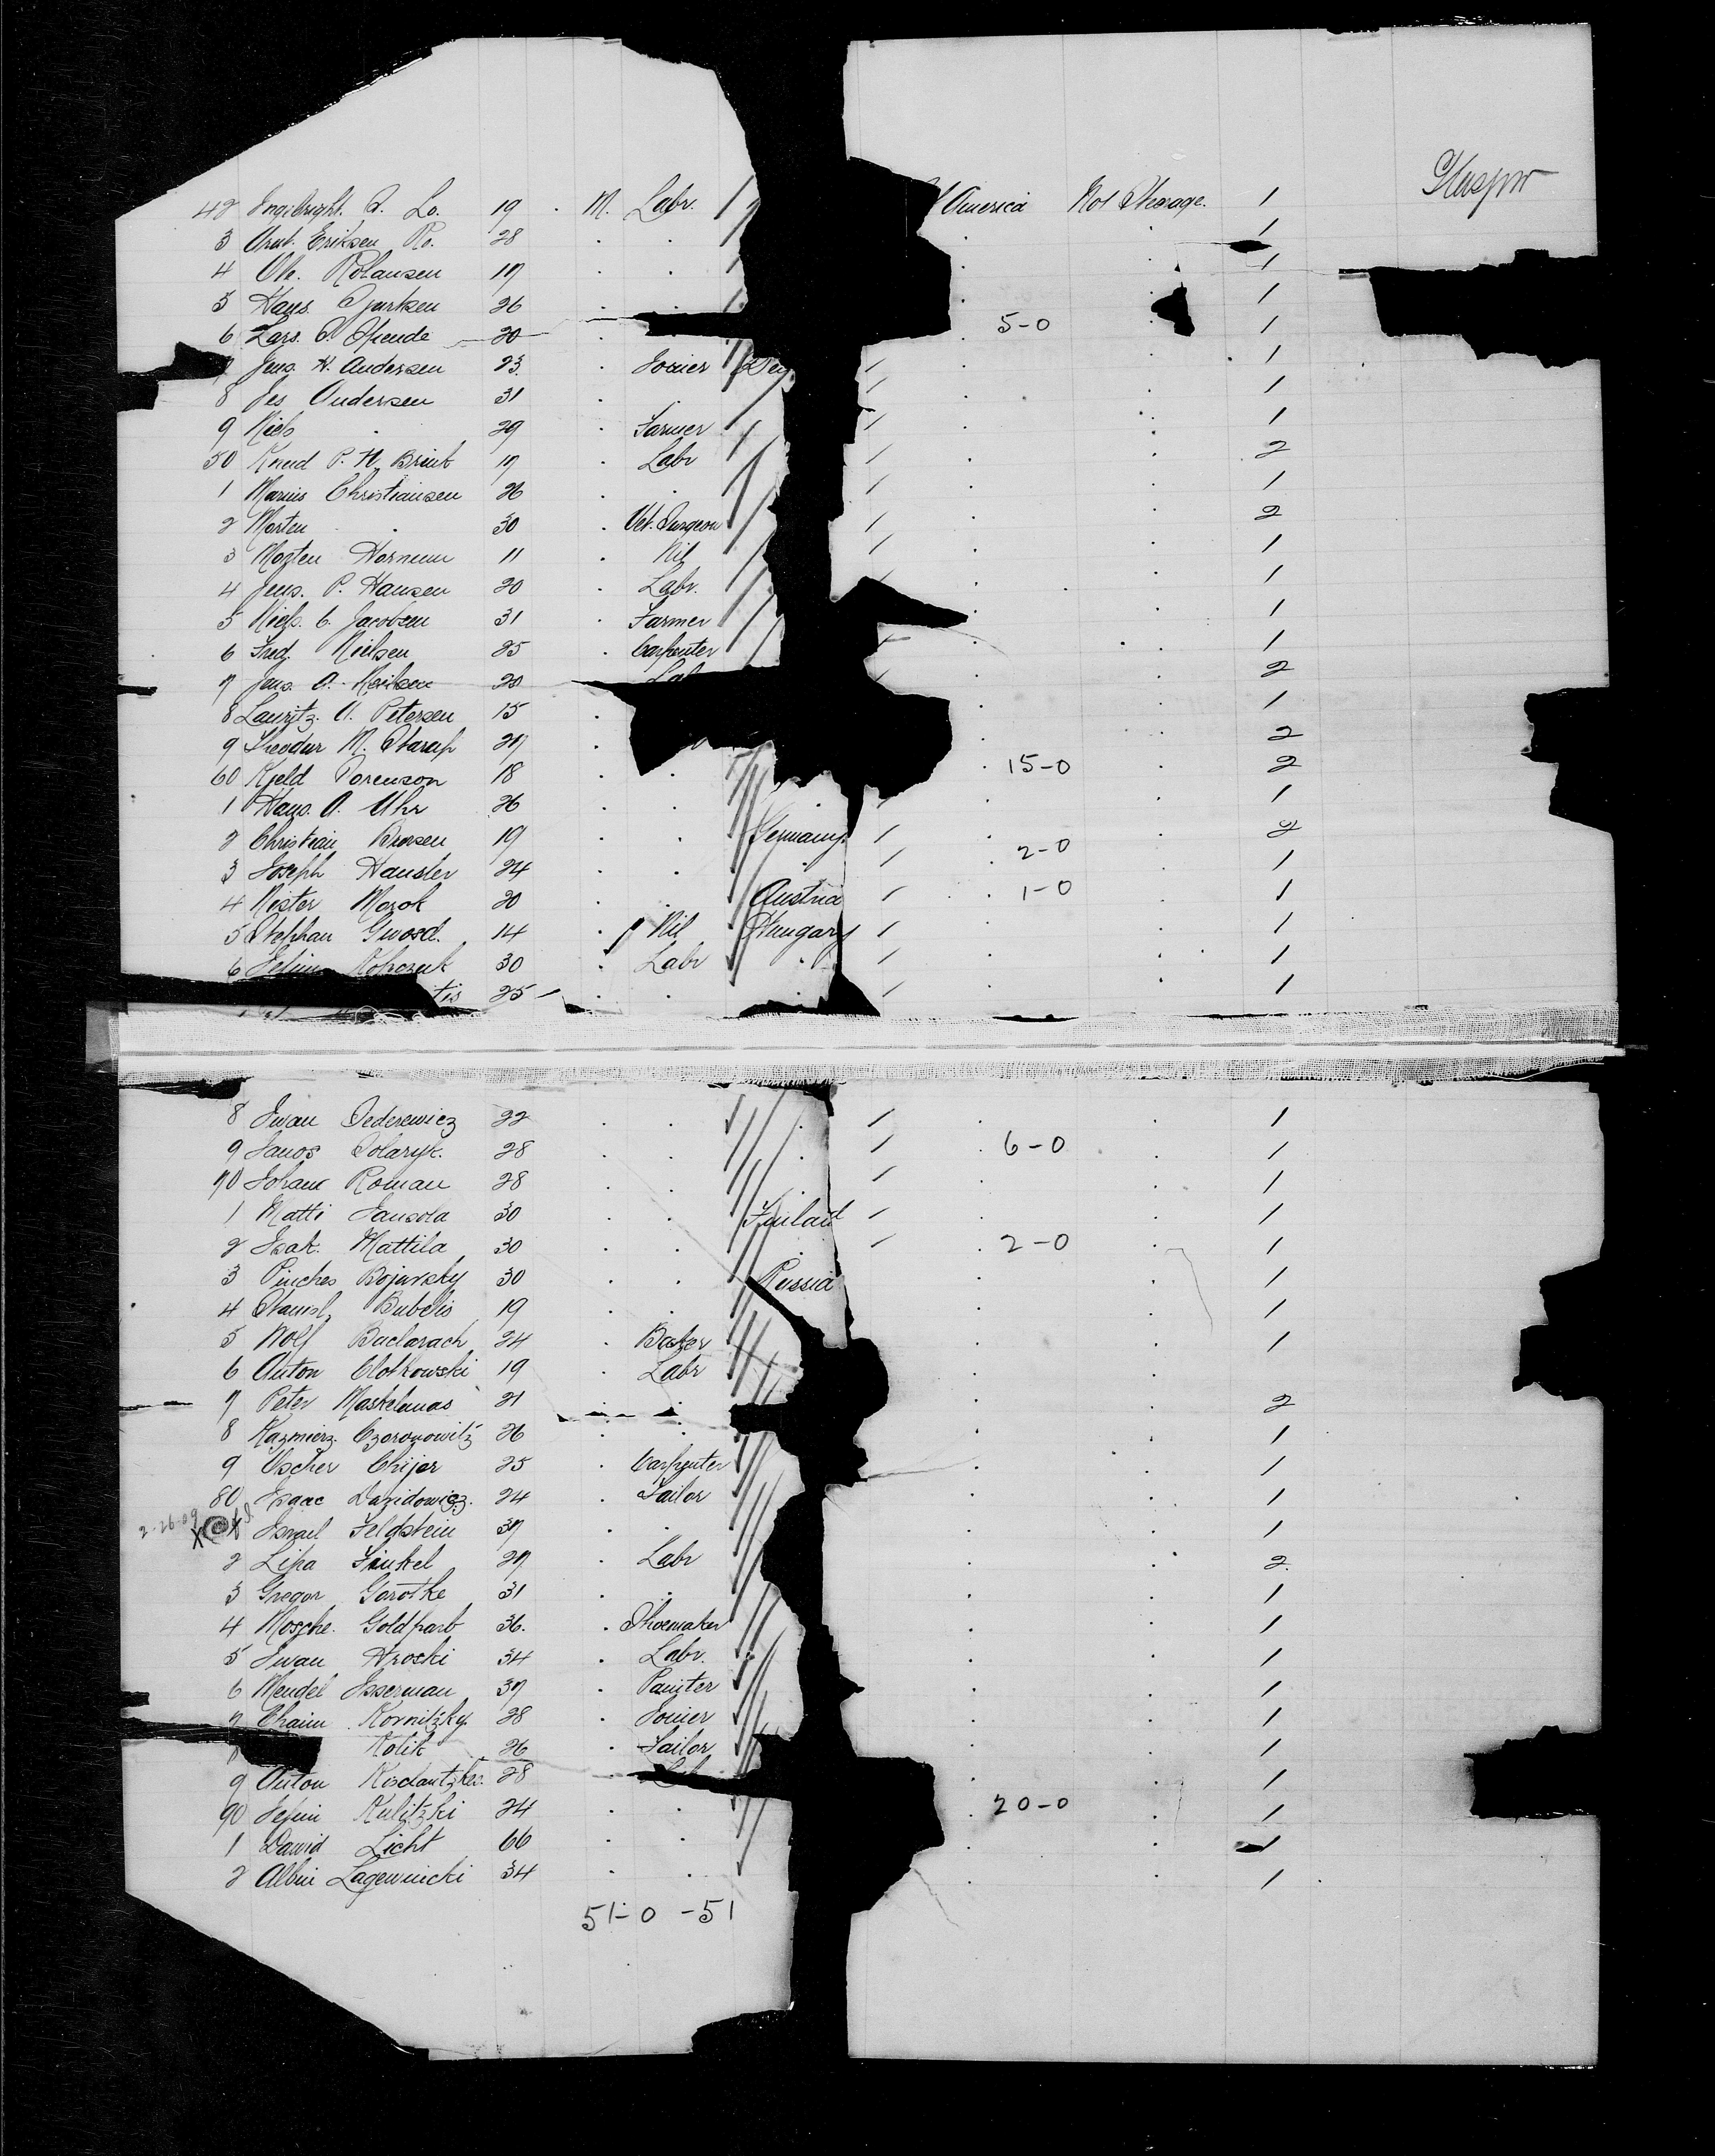 Glasgow
42 Ingebright. A. Lo. 19 . M. Labr. America Not Steerage. 1
3 Eriksen Ro. 28 . . . . 1
4 Ole. Rolausen 17 . . . 1
5 Hans. 26 . . . . 1
6 Lars. 20 . . 5-0 . 1
7 Jens. H. Andersen 23. . Joiner Den . 1
8 Jes Andersen 31 . . . . 1
9 Niels . 29 . Farmer . . 1
50 Knud P. N. Brink 17 . Labr . . 2
1 Marius Christiansen 26 . . . . 1
2 Morten . 30 . Vet. Surgeon . . 2
3 Morten Hornum 11 . Nil . . 1
4 Jens. P. Hansen 20 . Labr. . . 1
5 Niels. C. Jacobsen 31 . Farmer . . 1
6 Fred. Nielsen 25 . Carpenter . . 1
7 Jens. A. Neilsen 20 Lab . . 2
8 Lauritz. A. Petersen 15 . . . 1
9 Theodor M. Starup 27 . . . 2
60 Kjeld Sorenson 18 . . . 15-0 . 2
1 Hans. A. Uhr 26 . . . . . 1
2 Christian Brosen 19 . . Germany . . 2
3 Joseph Hausler 24 . . . . 2-0 . 1
4 Mozok 20 . . Austria . 1-0 . 1
5 Stephan Gwosd. 14 . Nil Hungary . . 1
6 30 . Labr . . . 1
tis 25 . . . . . 1
8 Iwan Sederewicz 22 . . . . . 1
9 Janos Solaryk. 28 . . . . 6-0 . 1
70 Johann Roman 28 . . . . . 1
1 Matti Jansola 30 . . Finland . . 1
2 Isak. Mattila 30 . . . . 2-0 . 1
3 Pinches Bojarsky 30 . . Russia . . 1
4 Stanisl. Bubelis 19 . . . . 1
5 Wolf Baclarach 24 . Baker . . 1
6 Anton Clotkowski 19 . Labr . .
7 Peter Maskelunas 21 . . . . 2
8 Kazmierz. Czeronowitz 26 . . . . 1
9 Uscher Chijer 25 . Carpenter . . 1
80 Isaac Dazidowicz. 24 . Tailor . . 1
2-26-09 Israel Feldstein 37 . . . . 1
2 Lipa Finkel 27 . Labr . . 2
3 Gregor Gorotke 31 . . . . 1
4 Mosche. Goldfarb 36. . Shoemaker . . 1
5 Iwan Hroski 34 . Labr. . . 1
6 Mendel Isserman 37 . Painter . . 1
7 Chaim Kornitzky. 28 . Joiner . . 1
8 Kolik 26 . Tailor . . 1
9 Anton 28 . . 1
90 Kulitzki 24 . . . 20-0 . 1
1 Dawid Licht 66 . . . . 1
2 Albin Lagewnicki 34 . . . . 1
51-0-51